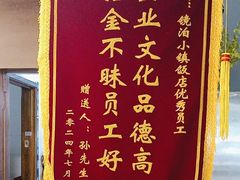 ：镜泊小镇饭店优秀员工
业文化品德高
金不昧员工好
赠送人：孙先生
二零二四年七月